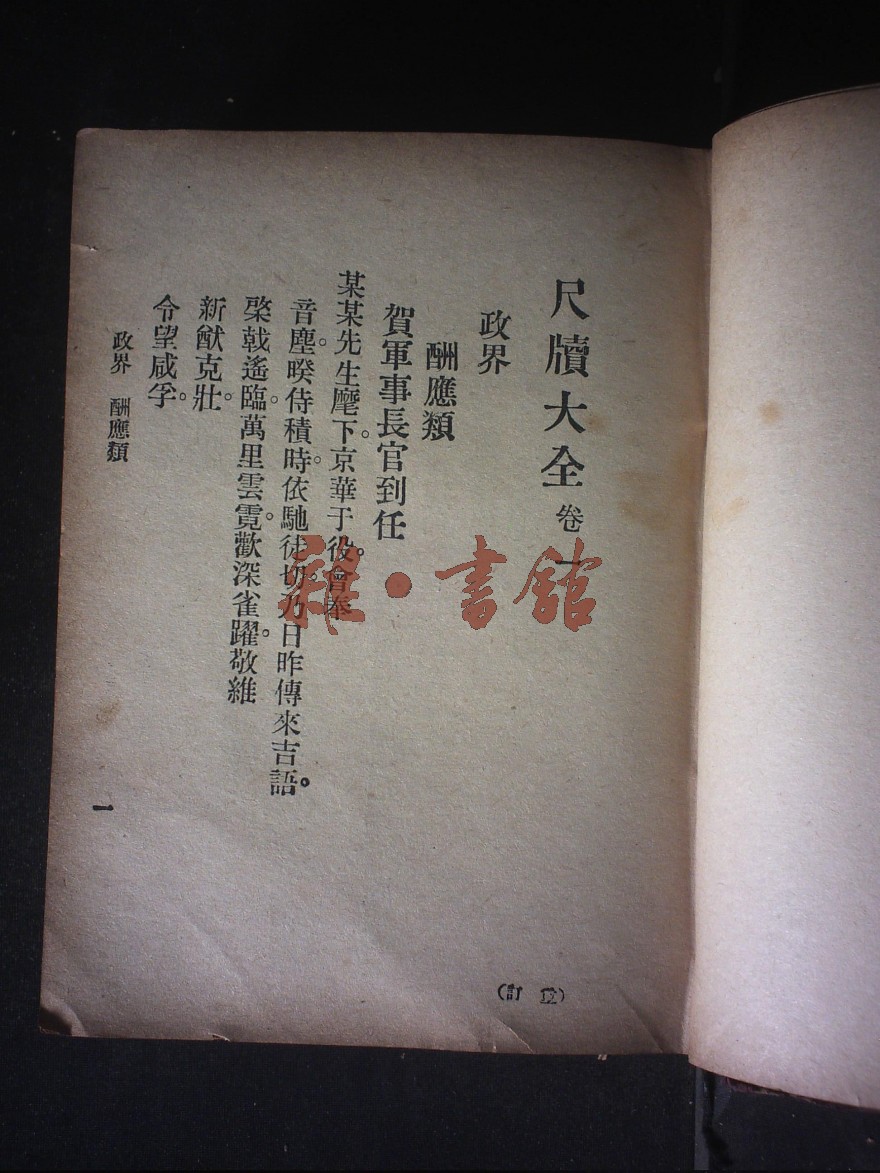 尺牘大全 卷一
政界
酬應類
賀軍事長官到任
某某先生麾下。京華于役。會奉
音塵。暌侍積時。依馳徒切。乃日昨傳來吉語。
棨戟遙臨。萬里雲霓。歡深雀躍。敬維
新猷克壯。
令望咸孚。
政界 酬應類
一
(訂 )
雅·書館